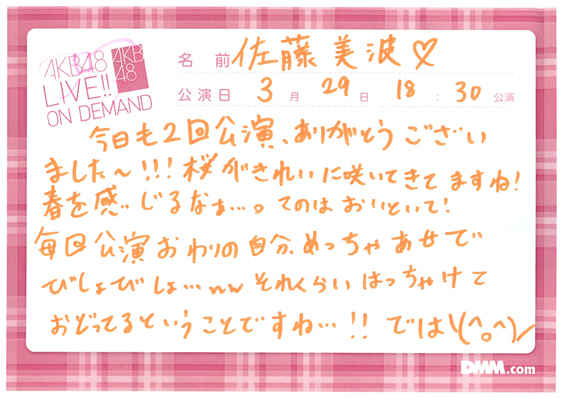 AKB48
LIVE!!
ON DEMAND
AKB
48
名前 佐藤美波♡
公演日 3月 29日 18:30 公演
今日も2回公演、ありがとうござい
ました〜!!!桜がきれいに咲いてきてますね!
春を感じるなぁ…。てのはおいといて!
毎回公演おわりの自分、めっちゃあせで
びしょびしょ…ww それくらいはっちゃけて
おどってるということですね…!! では\(^o^)ノ
DMM.com